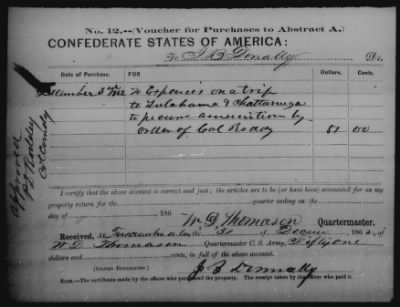 No. 12.—(Voucher for Purchases to Abstract A.)
CONFEDERATE STATES OF AMERICA:
To J. B. Donally Dr.
Date of Purchase. FOR Dollars. Cents.
1862 To Expences on a trip
to & Chattanooga
to
order of Col Roddy 51 00
Approved
Roddy
Col Comdg
I certify that the above account is correct and just; the articles are to be (or have been) accounted for on my
property return for the quarter ending on the
day of , 186
W. D. Thomason Quartermaster.
Received, at 186
W. D. Thomason Quartermaster C. S. Army, Fifty one
dollars and cents, in full of the above account.
(SIGNED DUPLICATES.)
J B Donnally
NOTE.—The certificate made by the officer who purchased the property. The receipt taken by the officer who paid it.